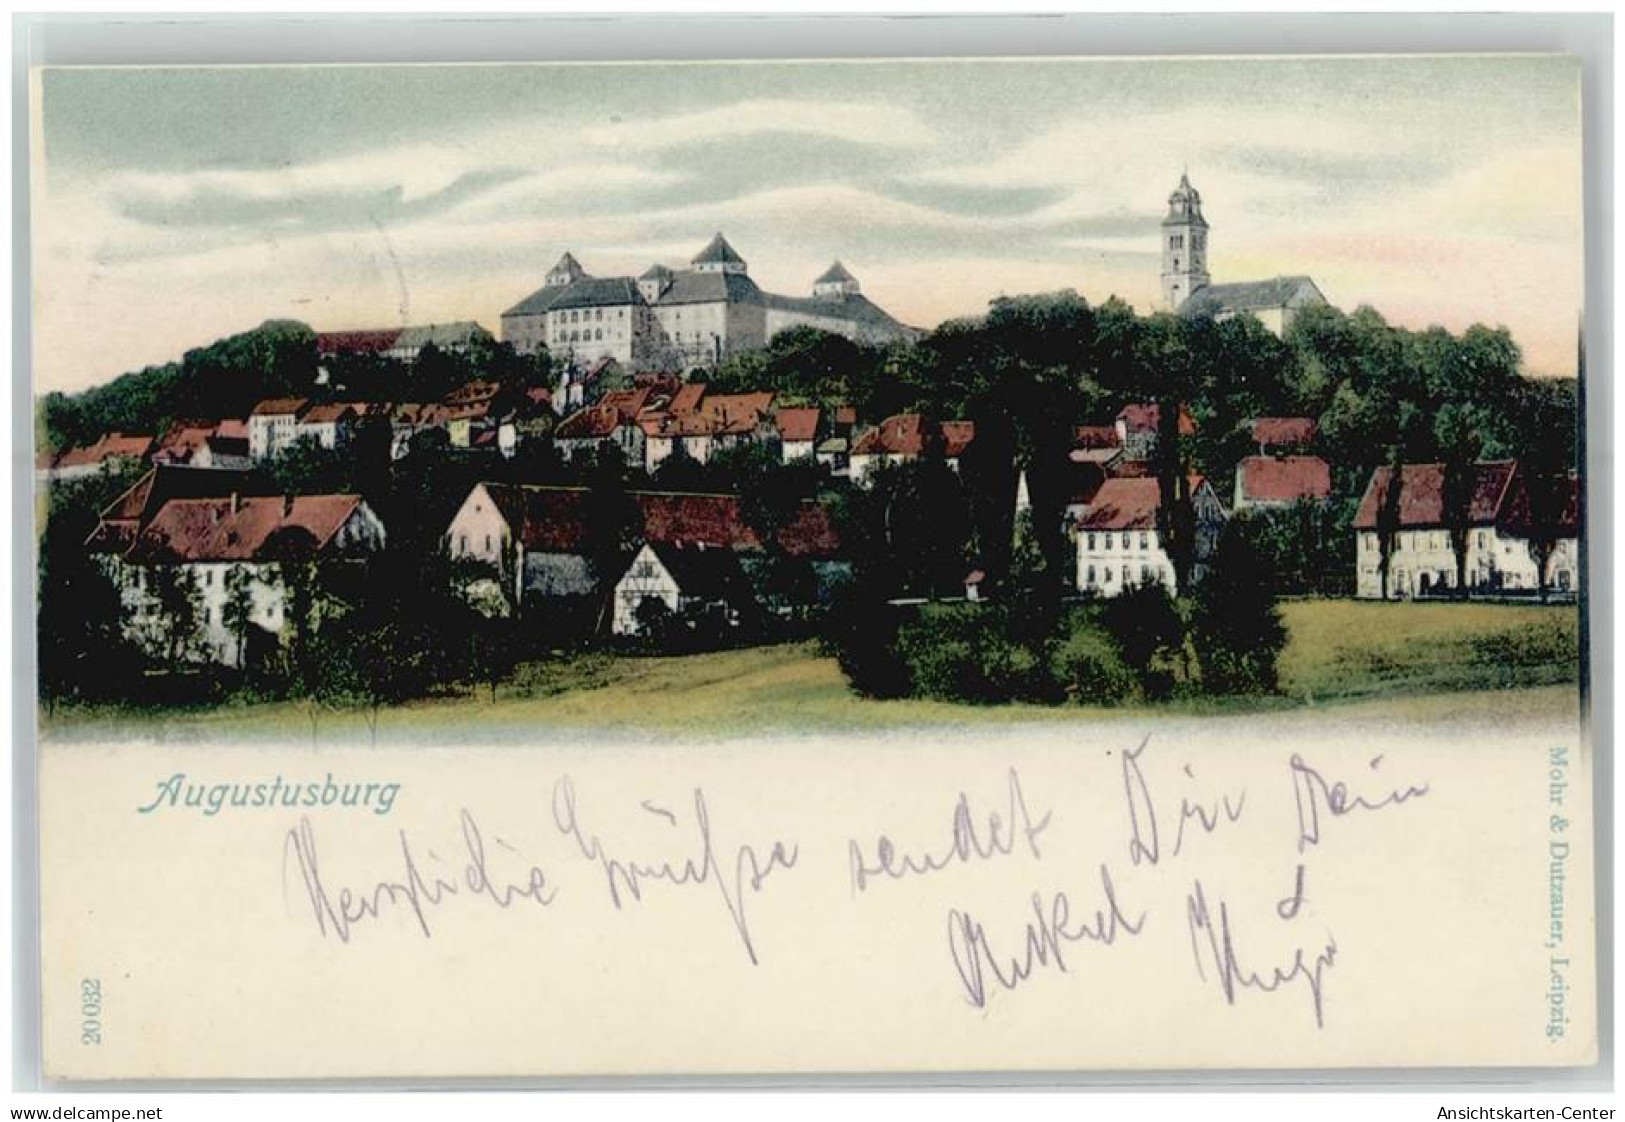 Augustusburg
Herzliche Grüße sendet Dir Dein
Hugo
20 032
Mohr & Dutzauer, Leipzig.
www.delcampe.net
Ansichtskarten-Center